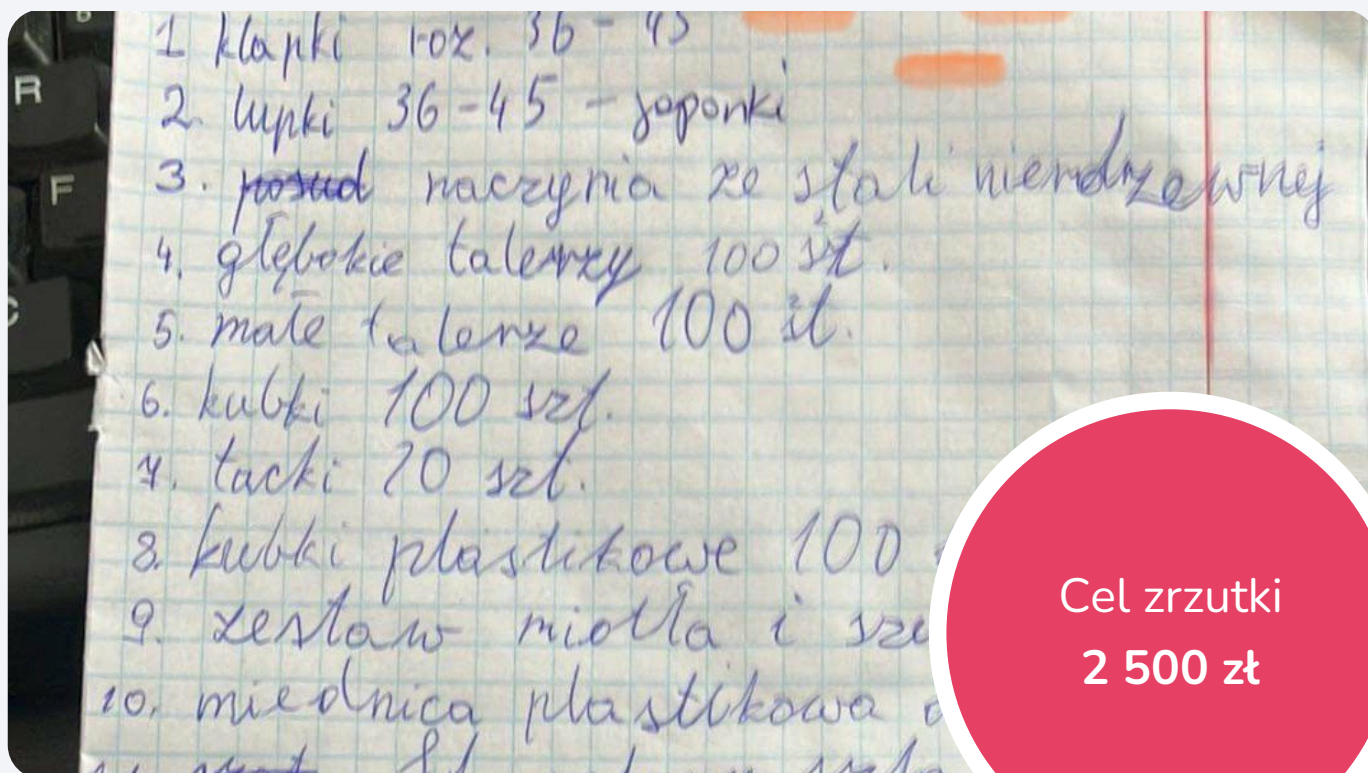 R
F
C
1 klapki roz. 36 - 45
2. lupki 36-45 - japonki
3. posud naczynia ze stali nierdzewnej
4. głębokie talerzy 100 št.
5. małe talerze 100 št.
6. kubki 100 szt.
7. tacki 20 szt.
8. kubki plastikowe 100
9. zestaw miotła i szu
10. miednica plastikowa d
Cel zrzutki
2 500 zł